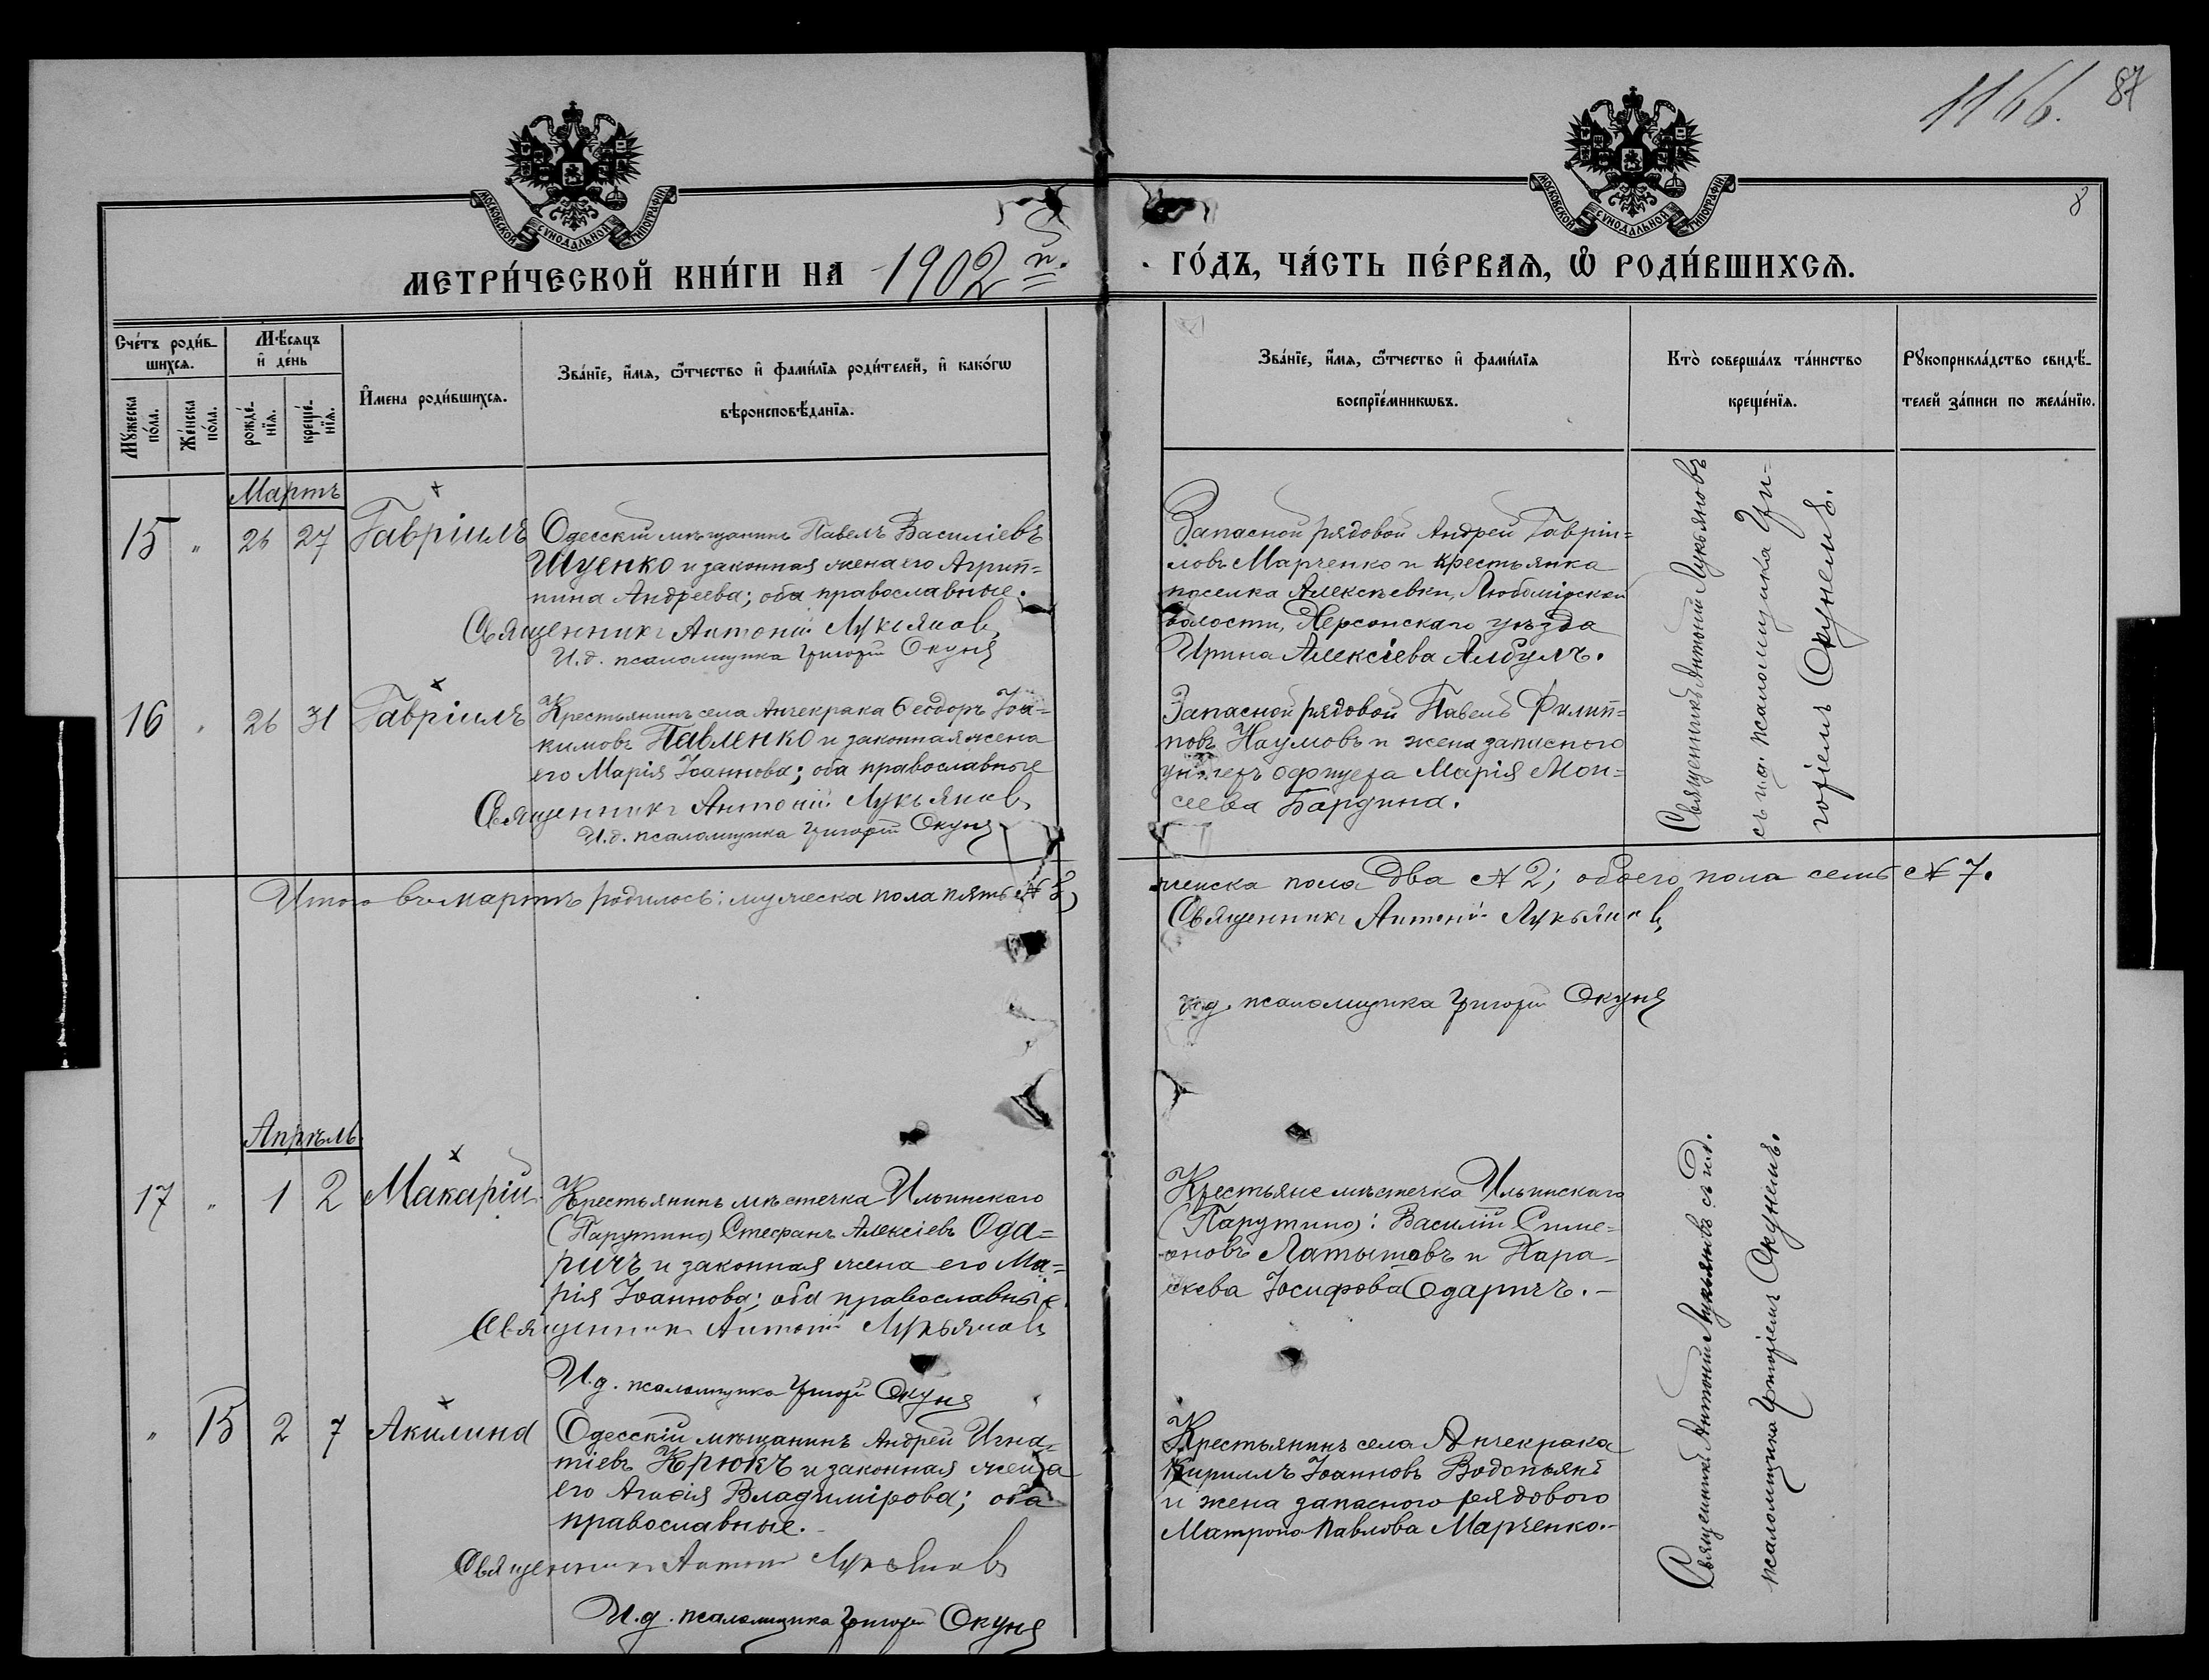 1166.
87
8
МОСКОВСКОЙ СѴНОДАЛЬНОЙ ТИПОГРАФІИ
МОСКОВСКОЙ СѴНОДАЛЬНОЙ ТИПОГРАФІИ
МЕТРИ́ЧЕСКОЙ КНИ́ГИ НА 1902й.
ГО́ДЪ, ЧА́СТЬ ПЕ́РВАѦ, Ѽ РОДИ́ВШИХСѦ.
Сче́тъ роди́в-
шихсѧ.
Мꙋжеска
по́ла.
Же́нска
по́ла.
Мѣ́сѧцъ
и҆ де́нь
рожде́-
нїѧ.
креще́-
нїѧ.
И҆мена роди́вшихсѧ.
Зва́нїе, и҆́мѧ, ѻ҆́тчество и҆ фами́лїѧ роди́телей, и҆ како́гѡ
вѣроисповѣ́данїѧ.
Зва́нїе, и҆́мѧ, ѻ҆́тчество и҆ фами́лїѧ
воспрїе́мникѡвъ.
Кто̀ соверша́лъ та́инство
креще́нїѧ.
Рꙋкоприкла́дство свидѣ́-
телей за́писи по жела́нїю.
Мартъ
15 " 26 27 Гавріилъ
Одесскій мѣщанинъ Павелъ Василіевъ
Шуенко и законная жена его Агрип=
пина Андреева; оба православные.
Священникъ Антоній Лукьяновъ
И.д. псаломщика Григорій Окунь
Запасной рядовой Андрей Гавріи=
ловъ Марченко и крестьянка
поселка Алексѣевки, Любомірской
волости, Херсонскаго уѣзда
Ирина Алексіева Албулъ.
Священникъ Антоній Лукьяновъ
съ и.д. псаломщика Гри-
горіемъ Окунемъ.
16 " 26 31 Гавріилъ
Крестьянинъ села Анчекрака Ѳеодоръ Іоа=
кимовъ Павленко и законная жена
его Марія Іоаннова; оба православные
Священникъ Антоній Лукьяновъ
И.д. псаломщика Григорій Окунь
Запасной рядовой Павелъ Филип=
повъ Наумовъ и жена запасного
унтеръ офицера Марія Мои=
сеева Бардина.
Итого въ мартѣ родилось: мужеска пола пять № 5,
женска пола два № 2; обоего пола семь № 7.
Священникъ Антоній Лукьяновъ
И.д. псаломщика Григорій Окунь
Апрѣль
17 " 1 2 Макарій
Крестьянинъ мѣстечка Ильинскаго
(Парутино) Стефанъ Алексіевъ Ода=
ричъ и законная жена его Ма=
рія Іоаннова; оба православные.
Священникъ Антоній Лукьяновъ
И.д. псаломщика Григорій Окунь
Крестьяне мѣстечка Ильинскаго
(Парутино): Василій Симе=
оновъ Латышовъ и Пара-
скева Іосифова Одаричъ. -
Священникъ Антоній Лукьяновъ съ и.д.
псаломщика Григоріемъ Окунемъ.
" 15 2 7 Акилина
Одесскій мѣщанинъ Андрей Игна=
тіевъ Крюкъ и законная жена
его Агафія Владимірова; оба
православные. -
Священникъ Антоній Лукьяновъ
И.д. псаломщика Григорій Окунь
Крестьянинъ села Анчекрака
Кириллъ Іоанновъ Водопьянъ
и жена запасного рядового
Матрона Павлова Марченко. -